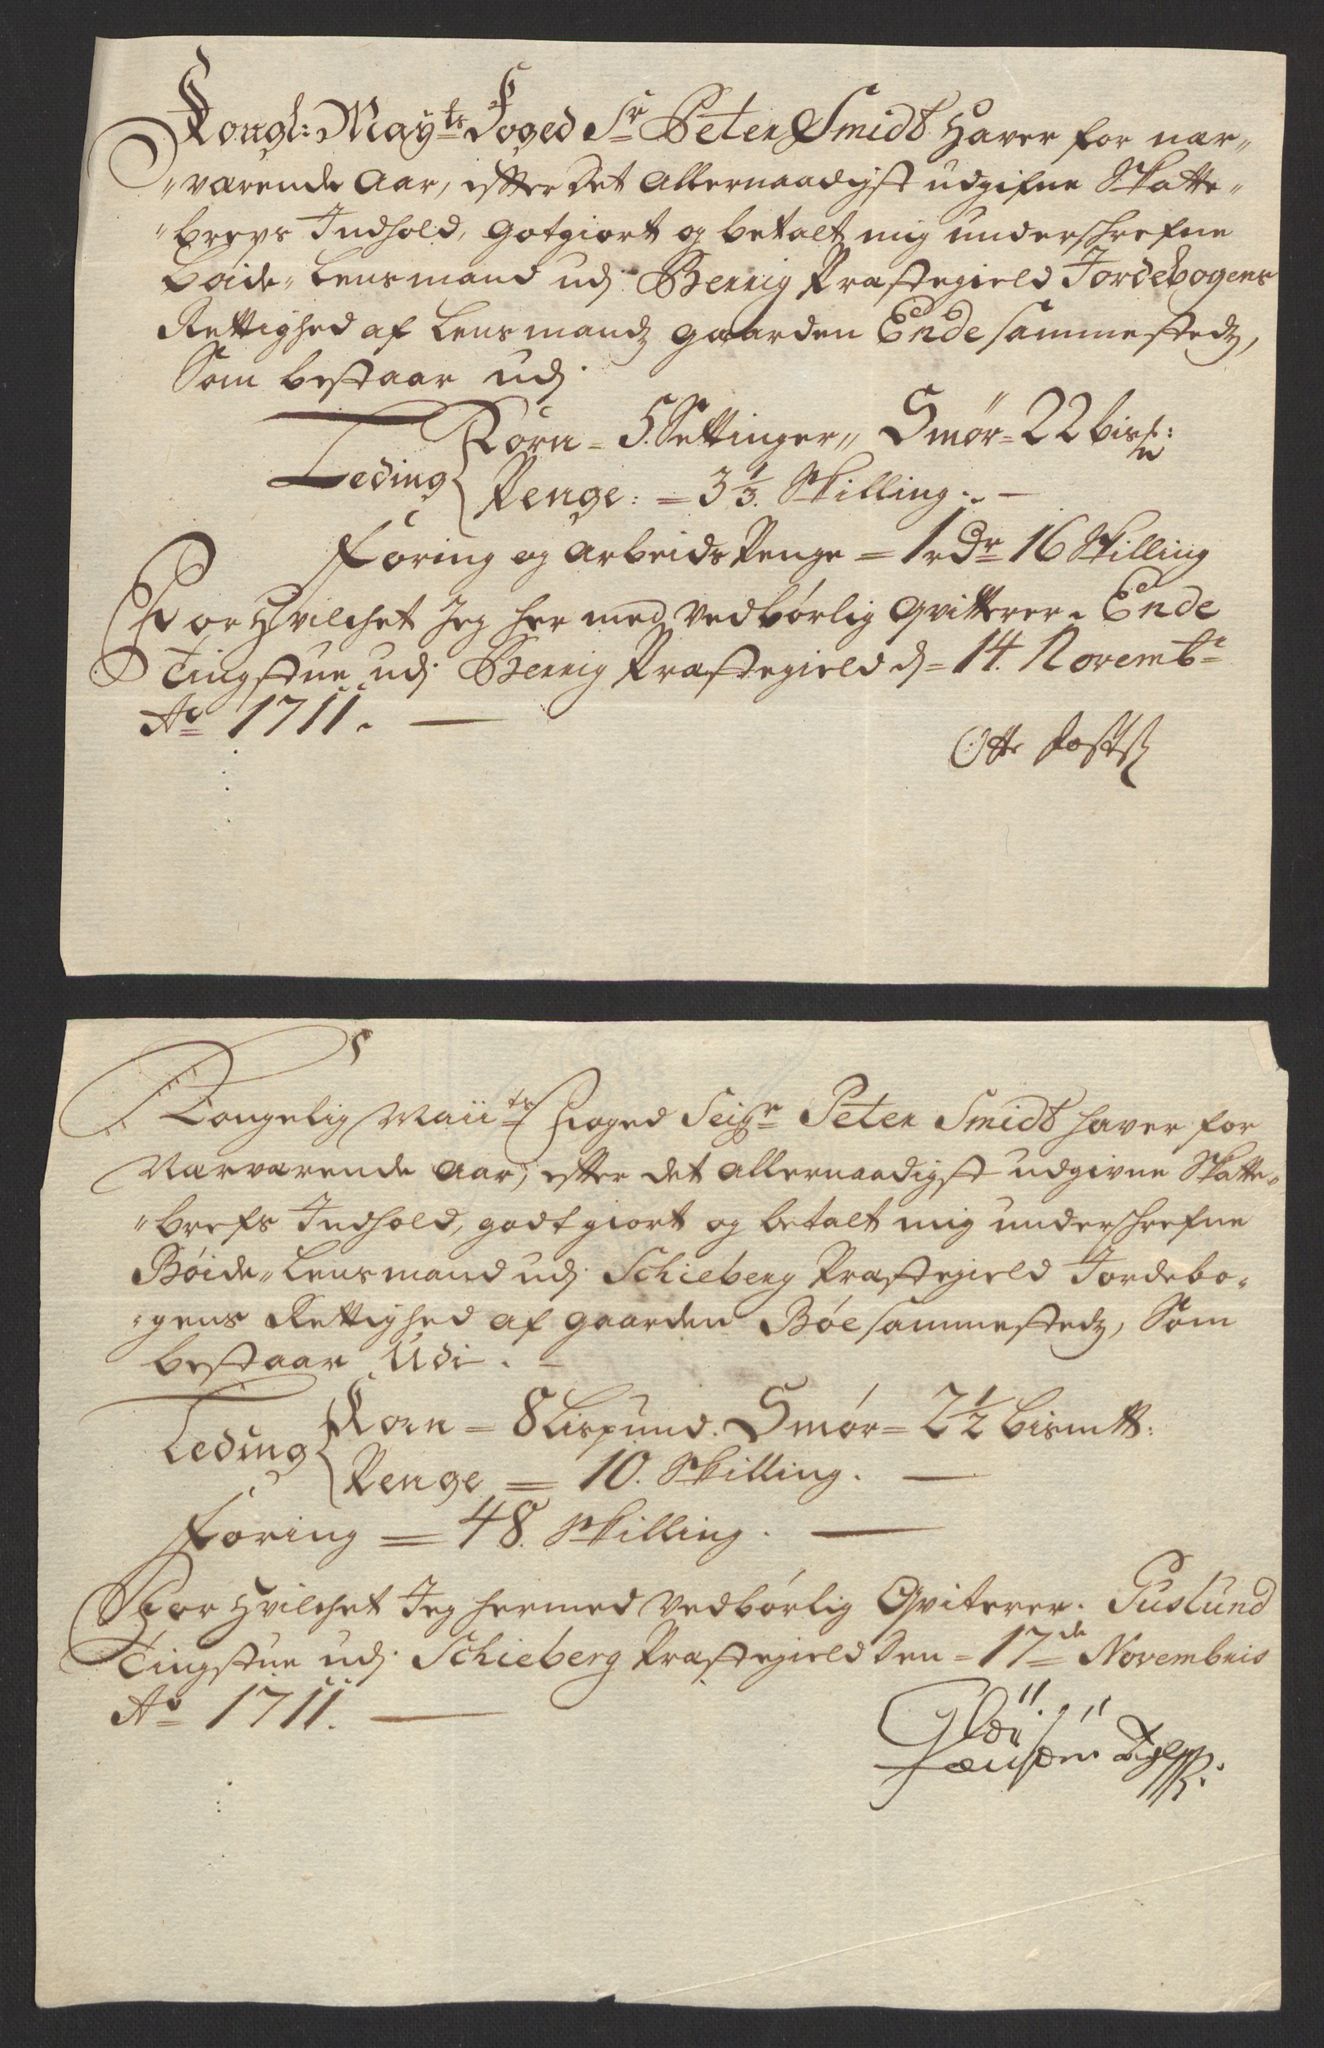 Kongl: Mayts Foged Sr Peter Smidt Haver for nær-
„værende Aar, efter det Allernaadigst udgifne Skatte„
„brevs Indhold, gotgiort og betalt mig underschrefne
Bøide„ Lensmand udj Berrig Præstegield Jordebogens
Rettighed af Lensmandz gaarden Ende sammestedz,
Som bestaar udj.
Leding { Korn = 5. Settinger„ Smør = 22 bis:
Penge: = 3 1/3. Skilling. —
Foring og Arbeids Penge = 1 rdr 16 Skilling
For Hvilchet Jeg her med vedbørlig Qvitterer. Ende
Tingstue udj Berrig Præstegield d = 14. Novembr
Ao 1711. —
Otte
Kongelig Maiits Foged Seigr Peter Smidt haver for
Nærværende Aar, efter det Allernaadigst udgivne Skatte„
„brefs Indhold, godtgiort og betalt mig underschrefne
Bøide„ Lensmand udj Schieberg Præstegield Jordebo-
„gens Rettighed af gaarden Bøe sammestedz, Som
bestaar Udi. —
Leding { Korn = 8 Lispund. Smør = 2 1/2 bismtt:
Penge = 10. Skilling. —
Foring = 48. Skilling. —
For Hvilchet Jeg hermed vedbørlig Qviterer. Guslund
Tingstue udj Schieberg Præstegield den = 17de Novembris
Ao 1711. —